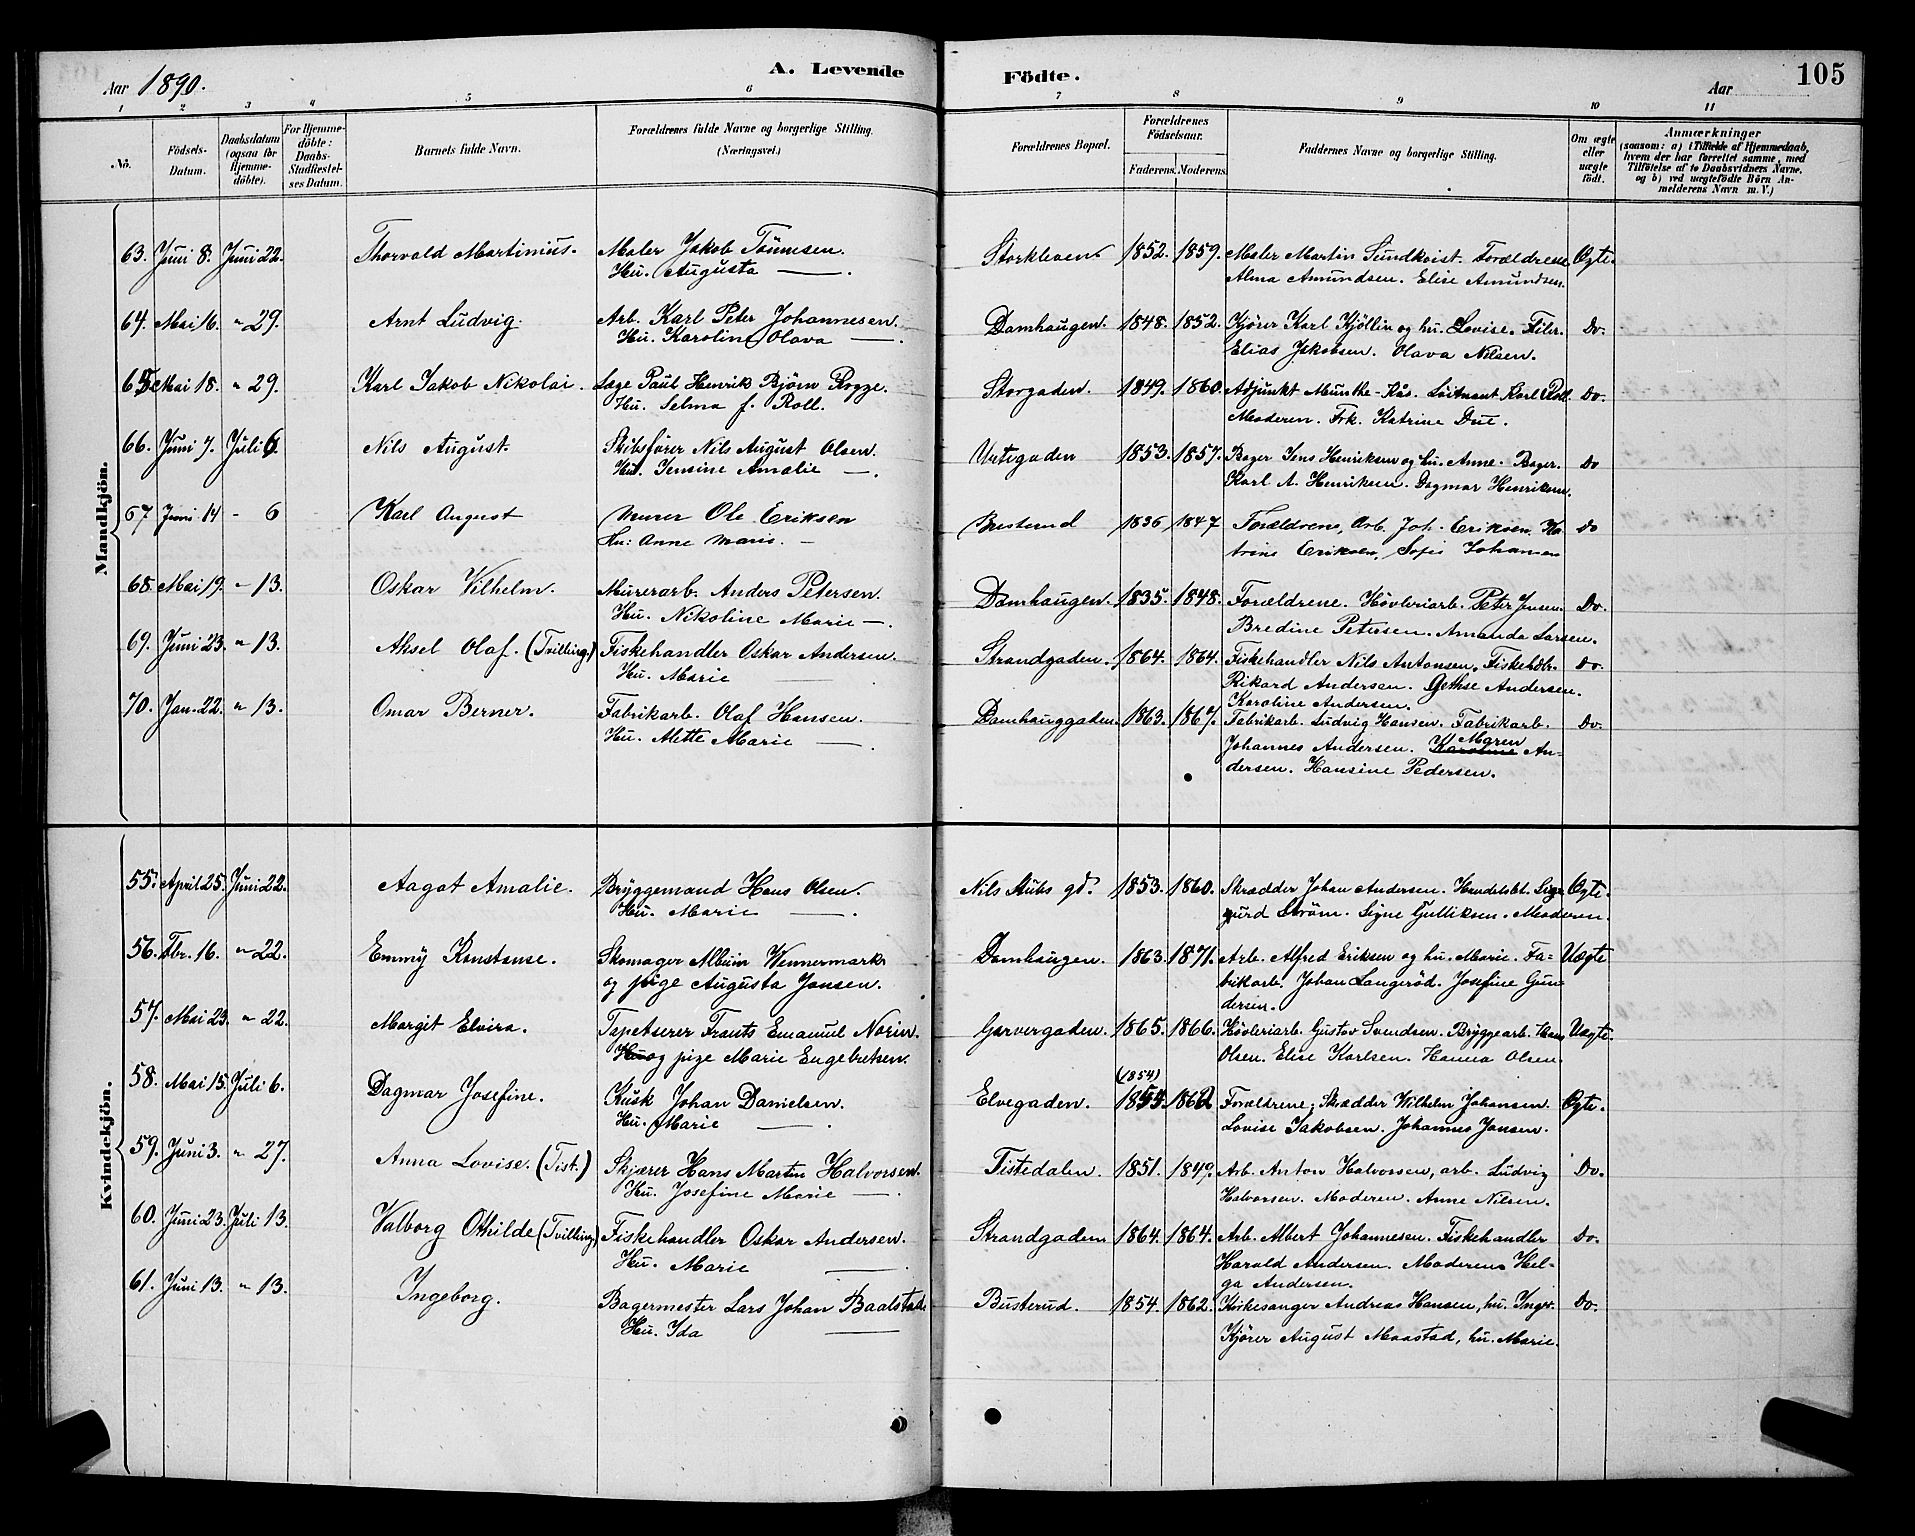 Aar 1890.
A. Levende
Födte.
Aar
105
1 2 3 4 5 6 7 8 9 10 11
No.
Födsels-Datum.
Daabsdatum (ogsaa for Hjemme-döbte).
For Hjemme-döbte: Daabs-Stadfæstel-ses Datum.
Barnets fulde Navn.
Forældrenes fulde Navne og borgerlige Stilling. (Næringsvei.)
Forældrenes Bopæl.
Forældrenes Födselsaar.
Faderens. Moderens.
Faddernes Navne og borgerlige Stilling.
Om ægte eller uægte født.
Anmærkninger
(saasom: a) i Tilfælde af Hjemmedaab,
hvem der har forrettet samme, med
Tilföielse af to Daabsvidners Navne,
og b) ved uægtefödte Börn An-
melderens Navn m. V.)
Mandkjön.
63. Juni 8. Juni 22. Thorvald Martinius. Maler Jakob Tømmesen. Storkleven 1852. 1859. Maler Martin Sundkvist. Forældrene Ægte.
Hu. Augusta —. Alma Amundsen. Elise Amundsen.
64. Mai 16. " 29. Arnt Ludvig. Arb. Karl Peter Johannesen. Damhaugen. 1848. 1852. Kjører Karl Kjöllin og hu. Lovise. Filer. Do.
Hu. Karoline Olava —. Elias Jakobsen. Olava Nilsen.
65 Mai 18. " 29. Karl Jakob Nikolai. Læge Paul Henrik Bjørn Rogge. Storgaden. 1849. 1860. Adjunkt Munthe-Kås. Løitnant Karl Roll. Do.
Hu. Selma f. Roll. Moderen. Frk. Katrine Due.
66. Juni 7. Juli 6. Nils August. Skibsfører Nils August Olsen. Urtegaden 1853. 1857. Bager Jens Henriksen og hu. Anne. Bager. Do
Hu. Jensine Amalie —. Karl A. Henriksen. Dagmar Henriksen.
67 Juni 14 - 6 Karl August Murer Ole Eriksen Busterud 1836 1847 Forældrene, Arb. Joh. Eriksen, Ka- Do
Hu: Anne Marie. — trine Eriksen, Sofie Johansen
68. Mai 19. " 13. Oskar Vilhelm. Murerarb. Anders Petersen. Damhaugen. 1835. 1848. Forældrene. Høvleriarb. Peter Jensen. Do.
Hu. Nikoline Marie —. Bredine Petersen. Amanda Larsen.
69. Juni 23. " 13. Aksel Olaf. (Tvilling.) Fiskehandler Oskar Andersen. Strandgaden. 1864. 1864. Fiskehandler Nils Antonsen. Fiskehdlr. Do.
Hu. Marie — Rikard Andersen. Gethse Andersen.
Karoline Andersen.
70. Jan. 22. " 13. Omar Berner. Fabrikarb. Olaf Hansen. Damhauggaden. 1863. 1867. Fabrikarb. Ludvig Hansen. Fabrikarb. Do.
Hu. Mette Marie —. Johannes Andersen. Karoline Maren An-
dersen. Hansine Pedersen.
Kvindekjön.
55. April 25. Juni 22. Aagot Amalie. Bryggemand Hans Olsen. Nils Stubs gd. 1853. 1860. Skrædder Johan Andersen. Handelsbt. Sig- Ægte.
Hu. Marie —. gurd Strøm. Signe Gulliksen. Moderen.
56. Fbr. 16. " 22. Emmy Konstanse. Skomager Albuin Wennermark Damhaugen. 1863. 1871. Arb. Alfred Eriksen og hu. Marie. Fa- Uægte
og pige Augusta Jansen. brikarb. Johan Langerød. Josefine Gun
dersen.
57. Mai 23. " 22. Margit Elvira. Tapetserer Frants Emanuel Norin Garvergaden. 1865. 1866. Høvleriarb. Gustav Svendsen. Bryggearb. Hans Uægte.
Hu og pige Marie Engebretsen. Olsen. Elise Karlsen. Hanna Olsen.
58. Mai 15. Juli 6. Dagmar Josefine. Kusk Johan Danielsen. Elvegaden. (1854) 1854. 1862 Forældrene; Skrædder Wilhelm Johansen. Ægte.
Hu. Marie —. Lovise Jakobsen. Johannes Jansen.
59. Juni 3. " 27. Anna Lovise. (Tist.) Skjærer Hans Martin Halvorsen. Tistedalen. 1851. 1849. Arb. Anton Halvorsen, arb. Ludvig Do.
Hu. Josefine Marie —. Halvorsen. Moderen. Anne Nilsen.
60. Juni 23. Juli 13. Valborg Othilde (Tvilling) Fiskehandler Oskar Andersen. Strandgaden 1864. 1864. Arb. Albert Johannesen. Fiskehandler Do.
Hu. Marie — Harald Andersen. Moderen. Hel-
ga Andersen.
61. Juni 13. " 13. Ingeborg. Bagermester Lars Johan Baalstad Busterud. 1854. 1862. Kirkesanger Andreas Hansen, hu. Inger. Do.
Hu. Ida — Kjører August Maastad, hu. Marie.